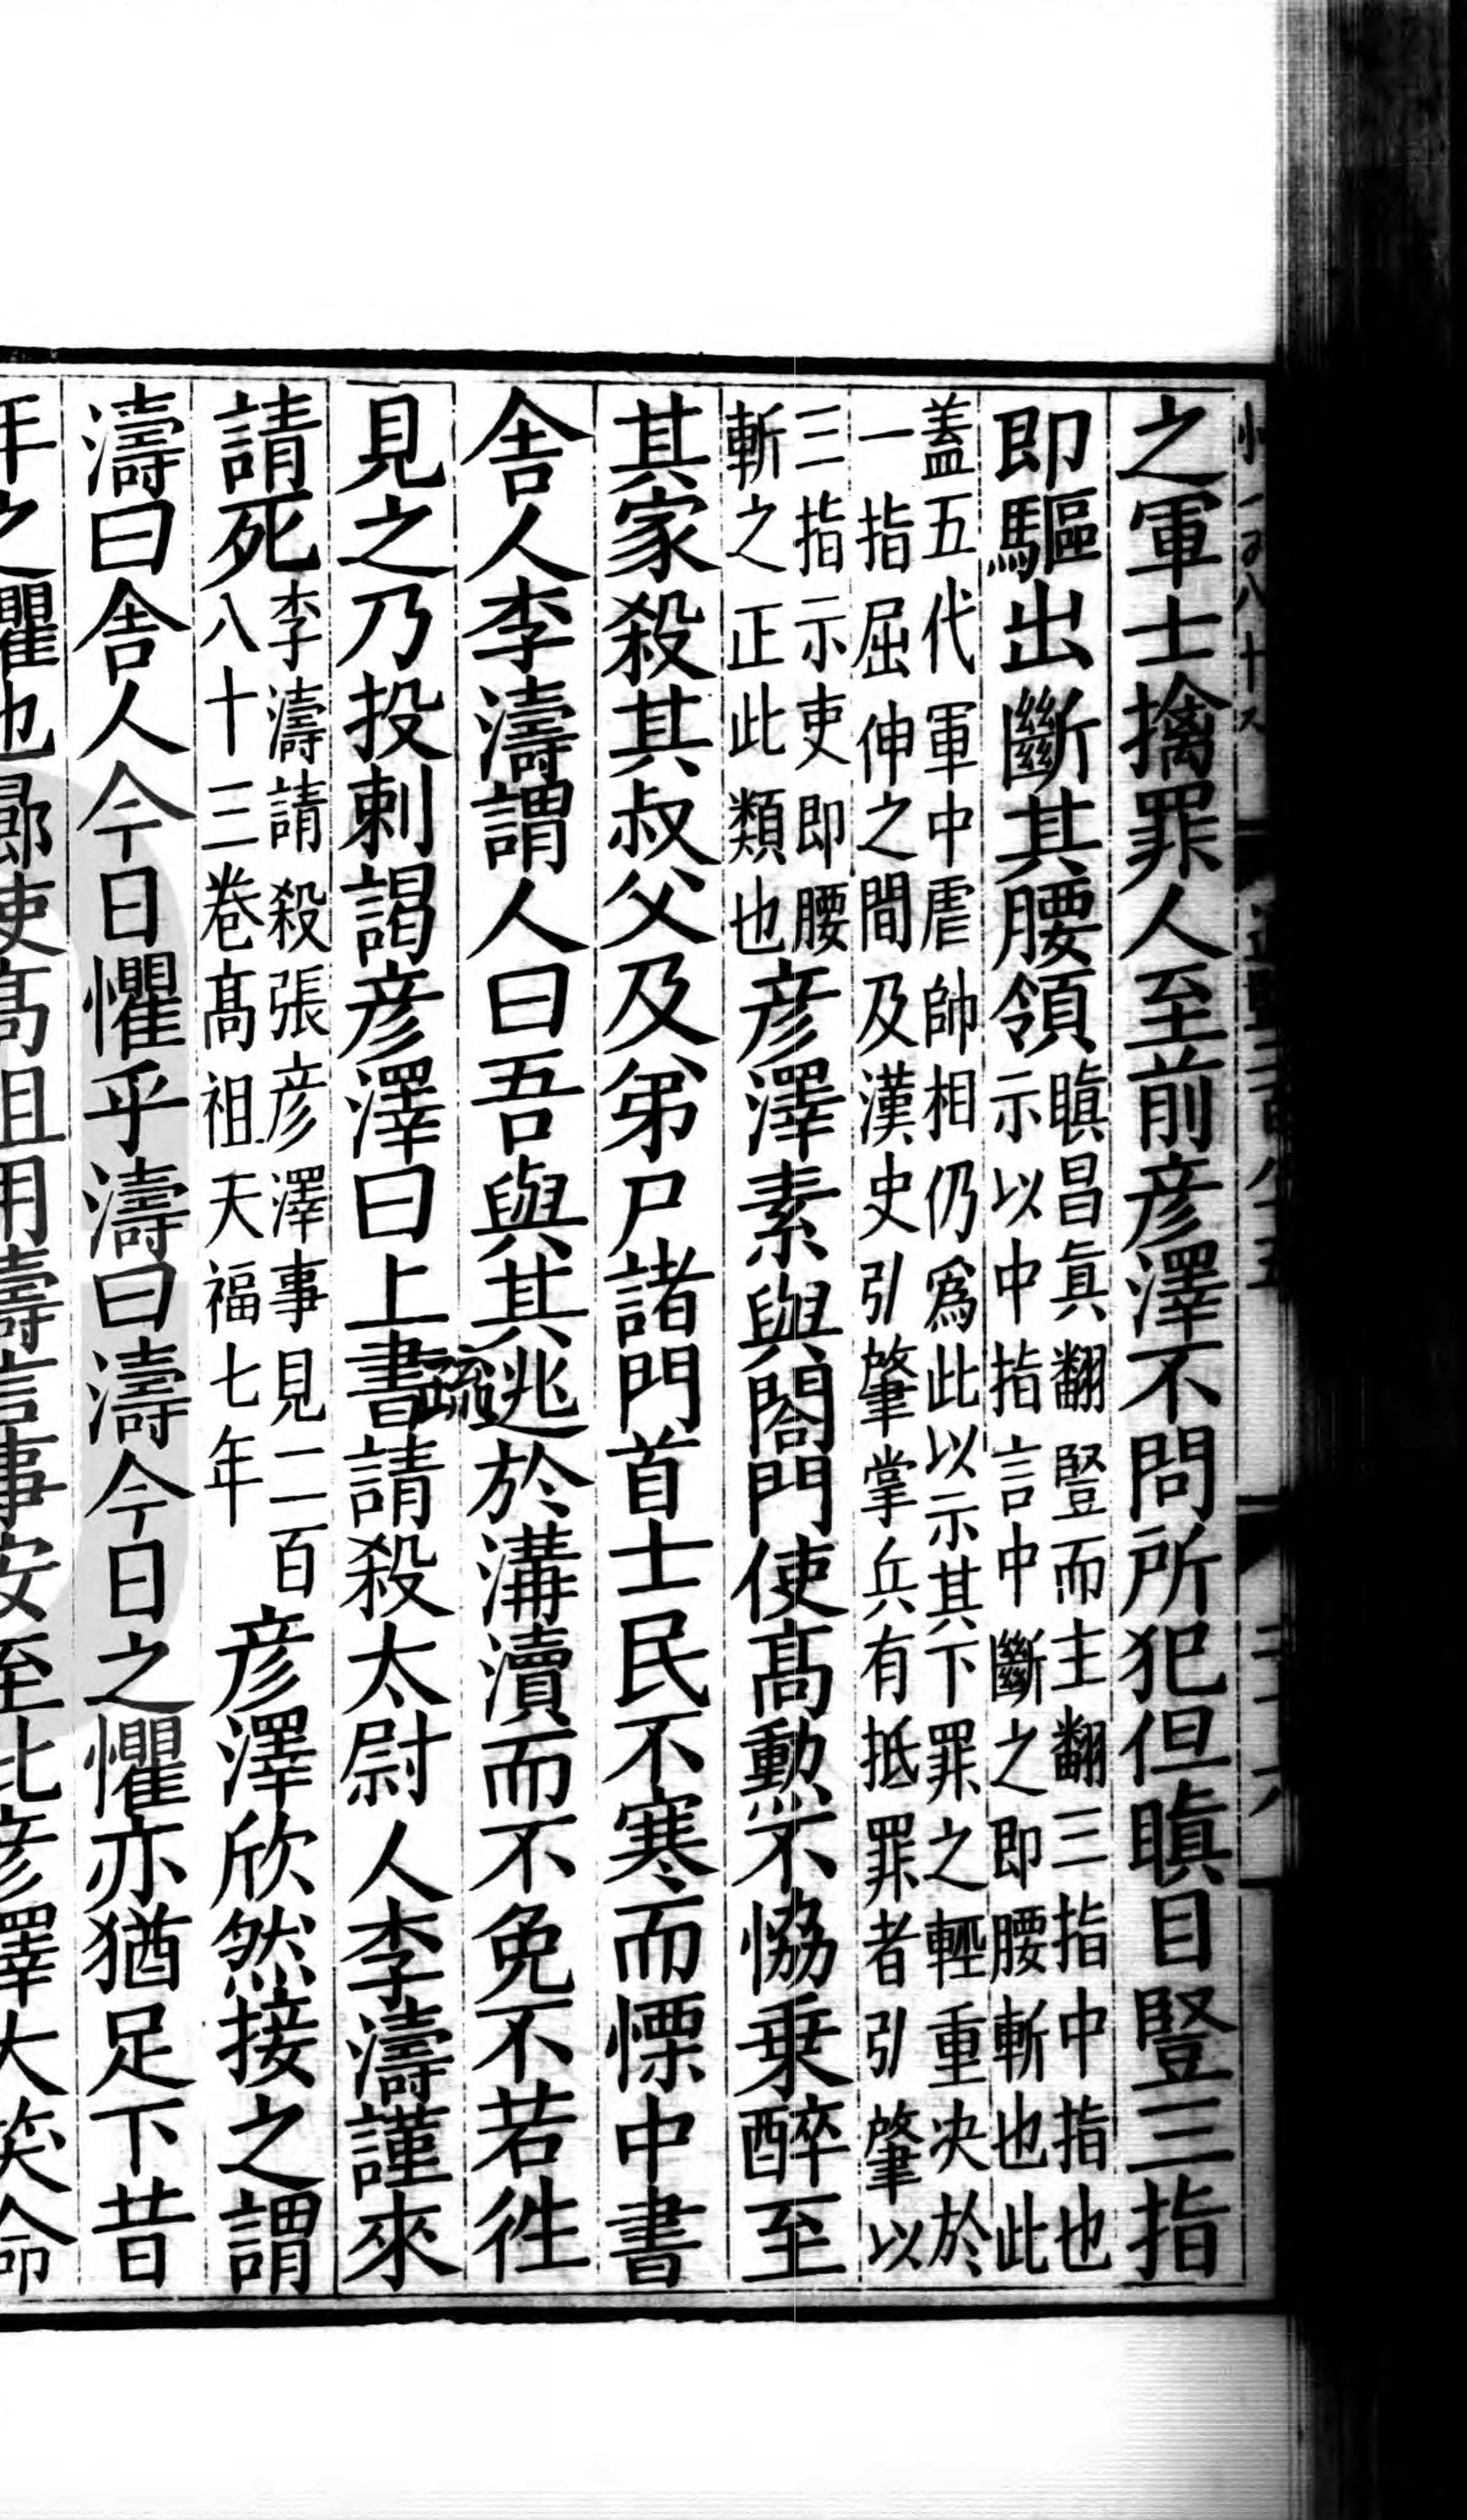 之軍士擒罪人至前彦澤不問所犯但瞋目豎三指
即驅出斷其腰領瞋昌真翻豎而主翻三指中指也
示以中指言中斷之即腰斬也此
蓋五代軍中虐帥相仍爲此以示其下罪之輕重决於
一指屈伸之間及漢史引肇掌兵有抵罪者引肇以
三指示吏即腰
斬之正此類也彦澤素與閤門使髙勲不恊乗醉至
其家殺其叔父及弟尸諸門首士民不寒而慄中書
舎人李濤謂人曰吾與其逃於溝瀆而不免不若徃
見之乃投刺謁彦澤曰上書疏請殺太尉人李濤謹來
請死李濤請殺張彦澤事見二百
八十三卷髙祖天福七年彦澤欣然接之謂
濤曰舎人今日懼乎濤曰濤今日之懼亦猶足下昔
年之懼也曏使髙祖用濤言事安至此彦澤大笑命